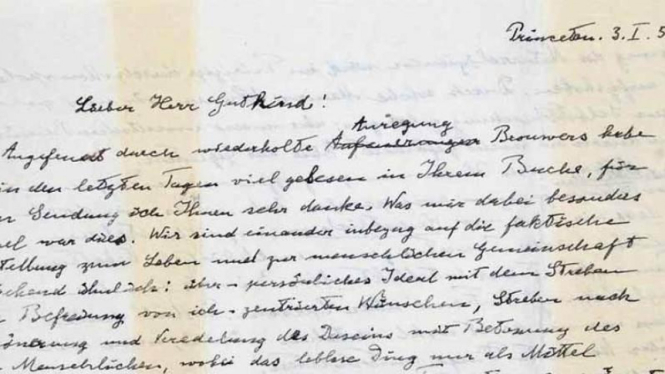 Princeton. 3. I. 5
Lieber Herr Gutkind!
Anregung
Angefeuert durch wiederholte Brouwers habe
in den letzten Tagen viel gelesen in Ihrem Buche, für
Sendung ich Ihnen sehr danke. Was mir dabei besonders
el war dies. Wir sind einander inbezug auf die faktische
tellung zum Leben und zur menschlichen Gemeinschaft
gehend ähnlich: persönliches Ideal mit dem Streben
Befreiung von ich-zentrierten Wünschen, Streben nach
önerung und Veredelung des Daseins mit Betonung des
Menschlichen, wobei das leblose Ding nur als Mittel